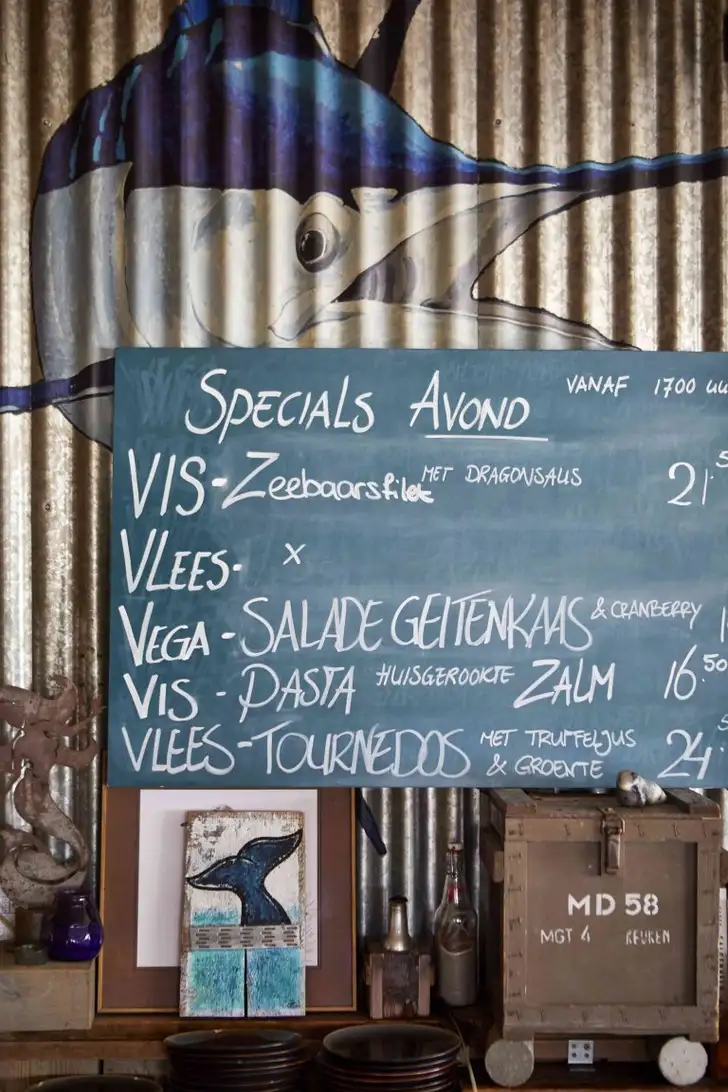 SPECIALS AVOND VANAF 1700
VIS-Zeebaarsfilet MET DRAGONSAUS 21.
VLEES- x
VEGA-SALADE GEITENKAAS & CRANBERRY
VIS-PASTA HUISGEROOKTE ZALM 16.50
VLEES-TOURNEDOS MET TRUFFELJUS & GROENTE 24
MD 58
MGT 4 KEUKEN